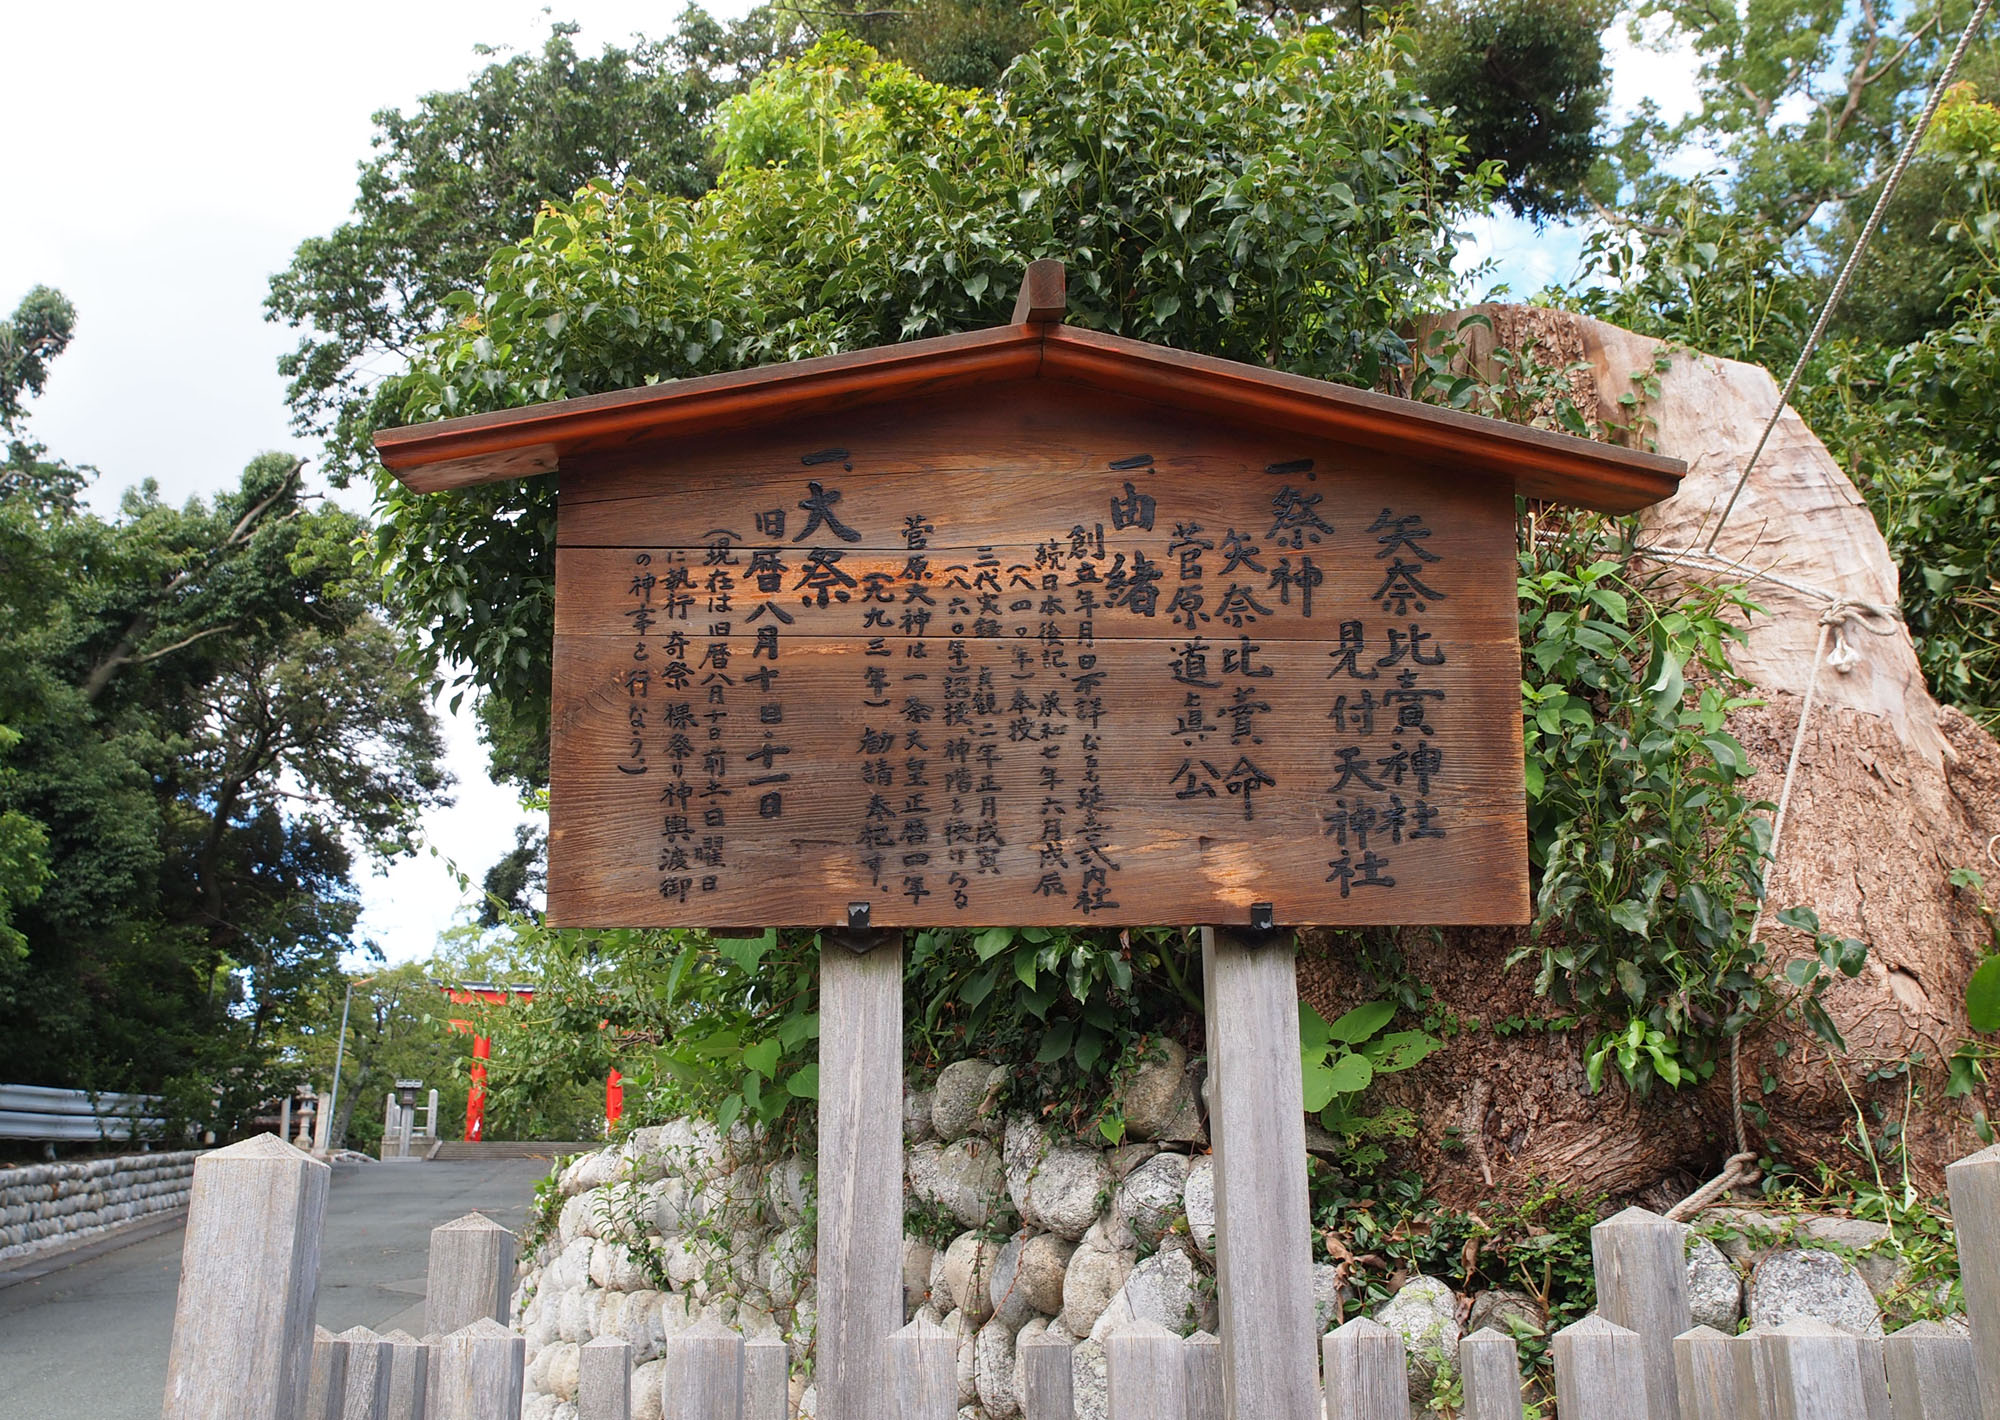 矢奈比賣神社
見付天神社
一、祭神
矢奈比賣命
菅原道真公
一、由緒
創立年月日不詳なるも延喜式内社
続日本後記、承和七年六月戌辰
(八四〇年)奉授
三代実録、貞観二年正月戌寅
(八六〇年)認授、神階を授けらる
菅原大神は一条天皇正暦四年
(九九三年)勧請奉祀す。
一、大祭
旧暦八月十日・十一日
(現在は旧暦八月十日前土・日曜日
に執行 奇祭 裸祭り神輿渡御
の神事を行なう。)